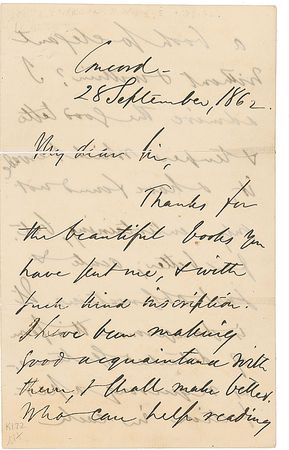 Concord—
28 September, 1862.
My dear Sir,
Thanks for
the beautiful books you
have sent me, & with
such kind inscription.
I have been making
good acquaintance with
them, & shall make better.
Who can help reading
K172